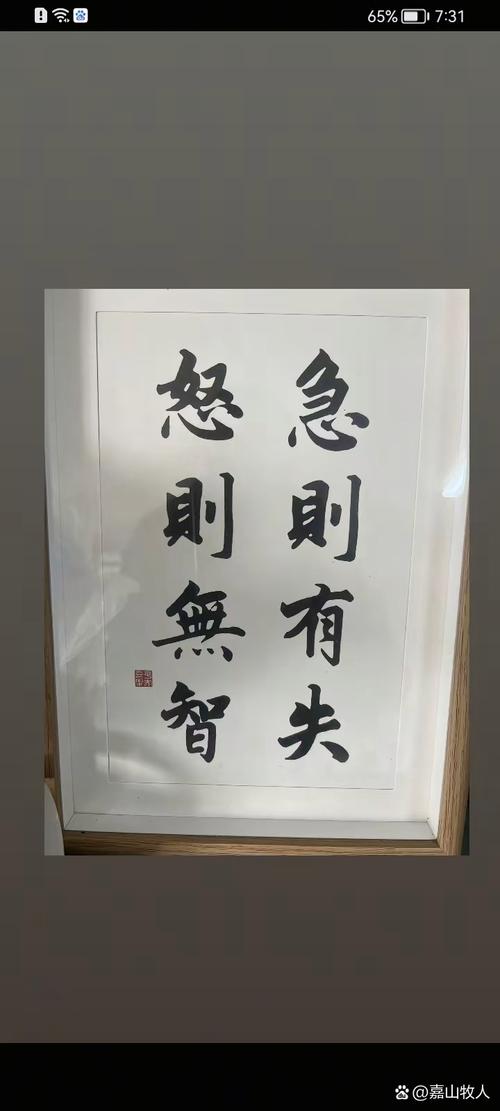 65% 7:31
急則有失
怒則無智
@嘉山牧人